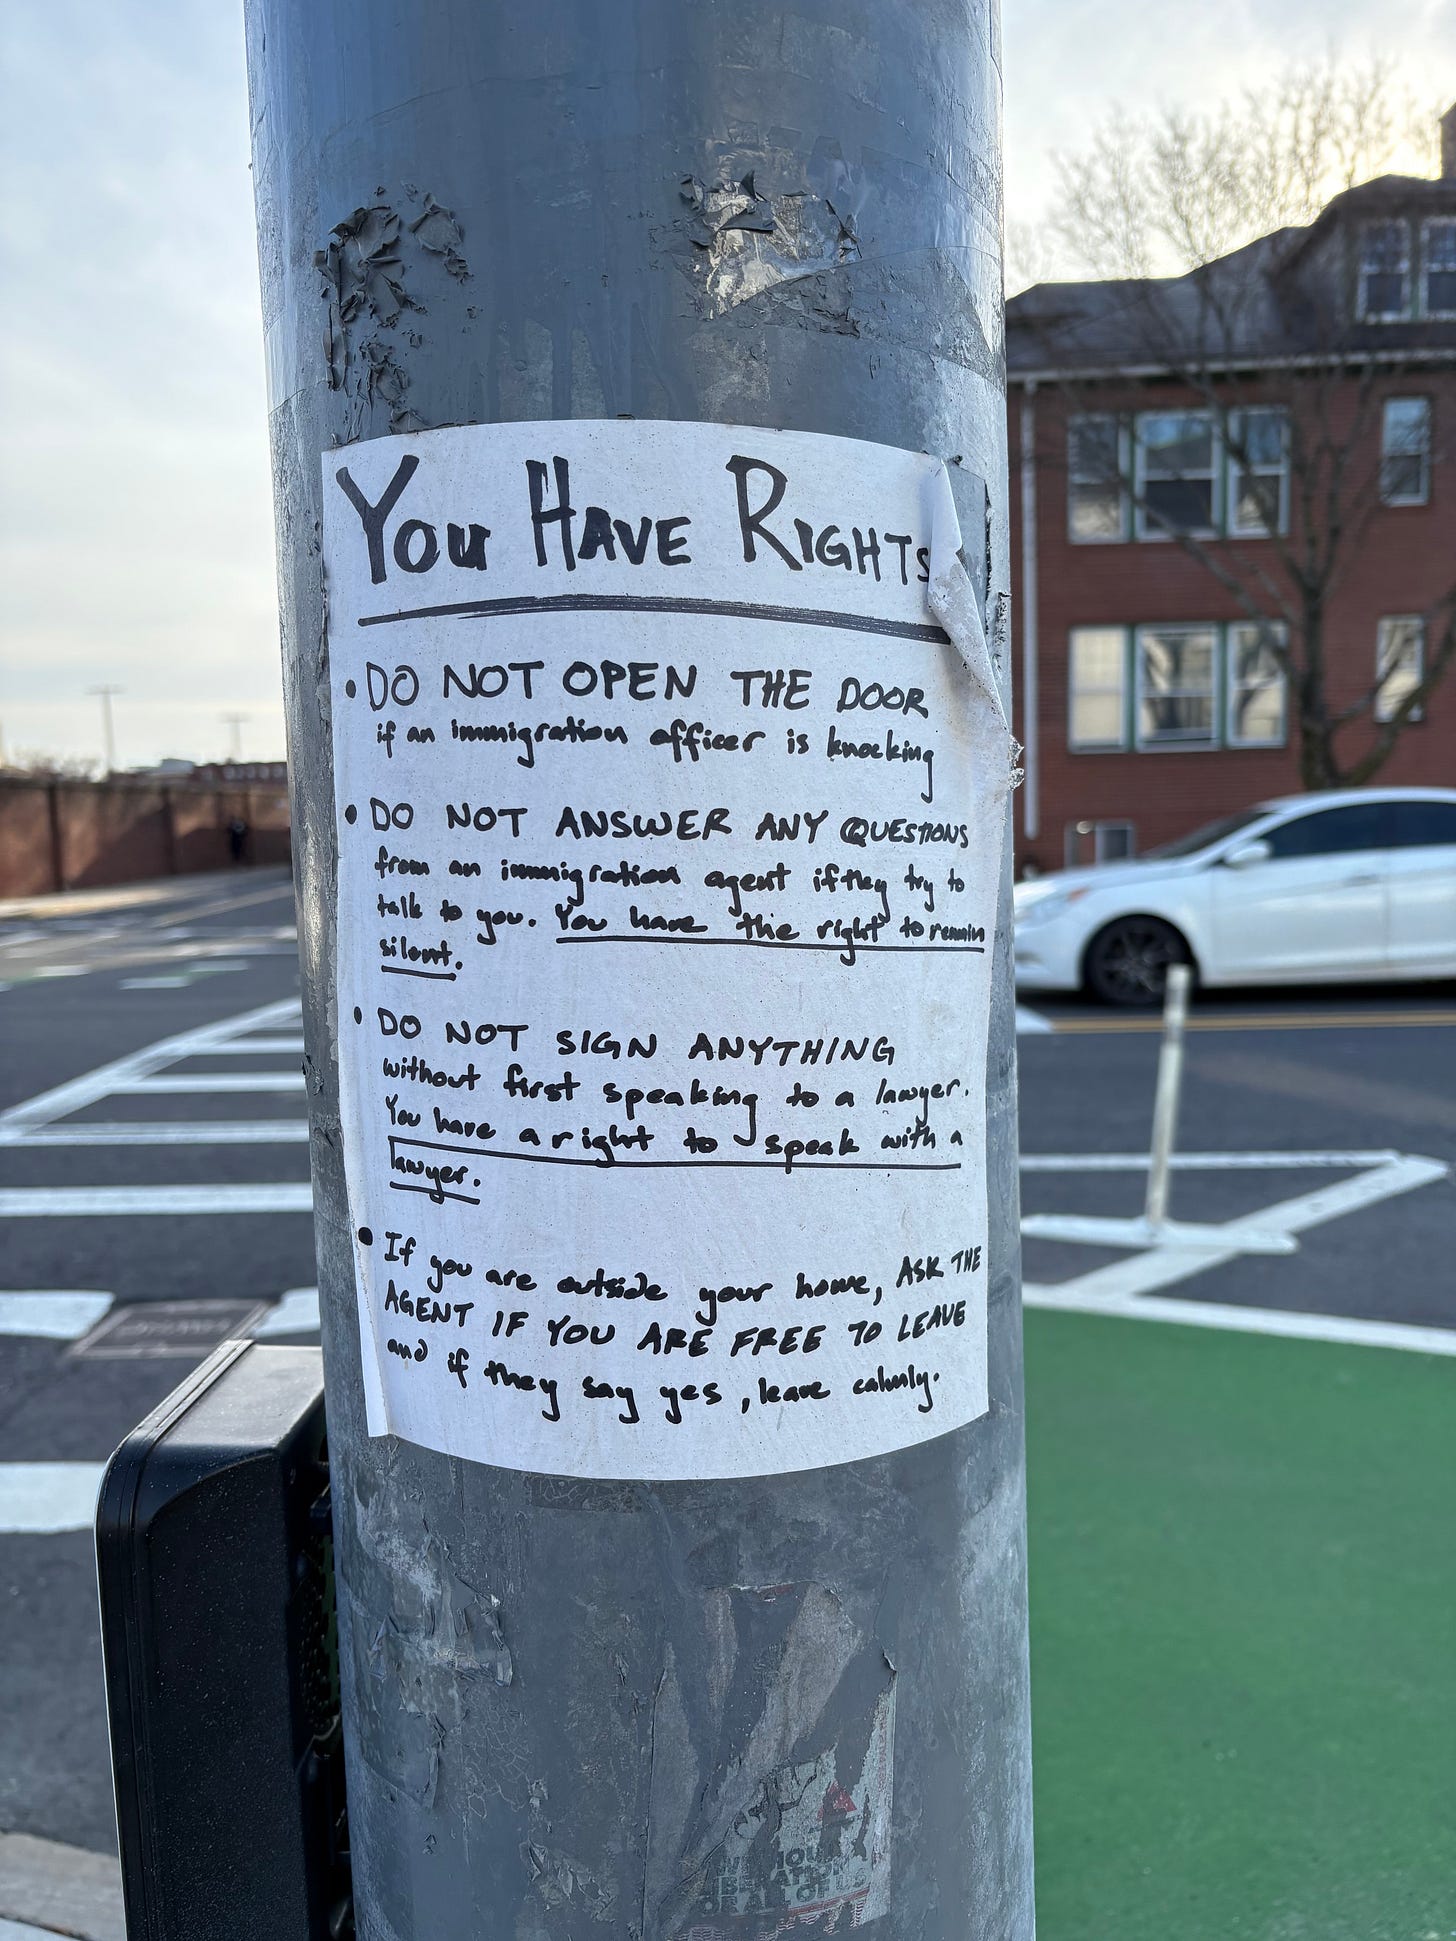 YOU HAVE RIGHTS
• DO NOT OPEN THE DOOR
if an immigration officer is knocking
• DO NOT ANSWER ANY QUESTIONS
from an immigration agent if they try to
talk to you. You have the right to remain
silent.
• DO NOT SIGN ANYTHING
without first speaking to a lawyer.
You have a right to speak with a
lawyer.
• If you are outside your home, ASK THE
AGENT IF YOU ARE FREE TO LEAVE
and if they say yes, leave calmly.
OF US